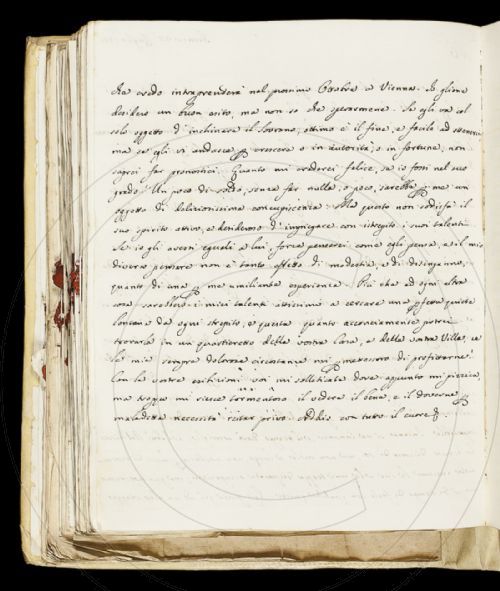 che credo intraprenderà nel prossimo Ottobre a Vienna. Io gliene
desidero un buon esito, ma non so che sperarmene. Se egli va col
solo oggetto d'inchinare il Sovrano, ottimo è il fine, e facile ad ottenersi
ma se egli vi andasse per crescere o in autorità, o in fortuna, non
saprei far pronostici. Quanto mi crederei felice, se io fossi nel suo
grado! Un poco di onde, senza far nulla, o poco, sarebbe per me un
oggetto di deliziosissima concupiscenza. Ma questo non sodisfà il
suo spirito attivo, e desideroso d'impiegare con istrepito i suoi talenti
Se io gli avessi eguali a lui, forse penserei come egli pensa, e il mio
diverso pensare non è tanto effetto di modestia, e di disinganno,
quanto di una per me umiliante esperienza. Più che ad ogni altra
cosa sarebbero i miei talenti attissimi a cercare una perfetta quiete
lontana da ogni strepito, e questa quanto acconciamente potrei
trovarla in un quartieretto della vostra Casa, e della vostra Villa, se
le mie sempre dolorose circostanze mi permettessero di profittarne.
Con le vostre esibizioni voi mi solleticate dove appunto mi pizzica,
ma troppo mi riesce tormentoso il vedere il bene, e il doverne per
maladetta necessità restar privo. Addio con tutto il cuore